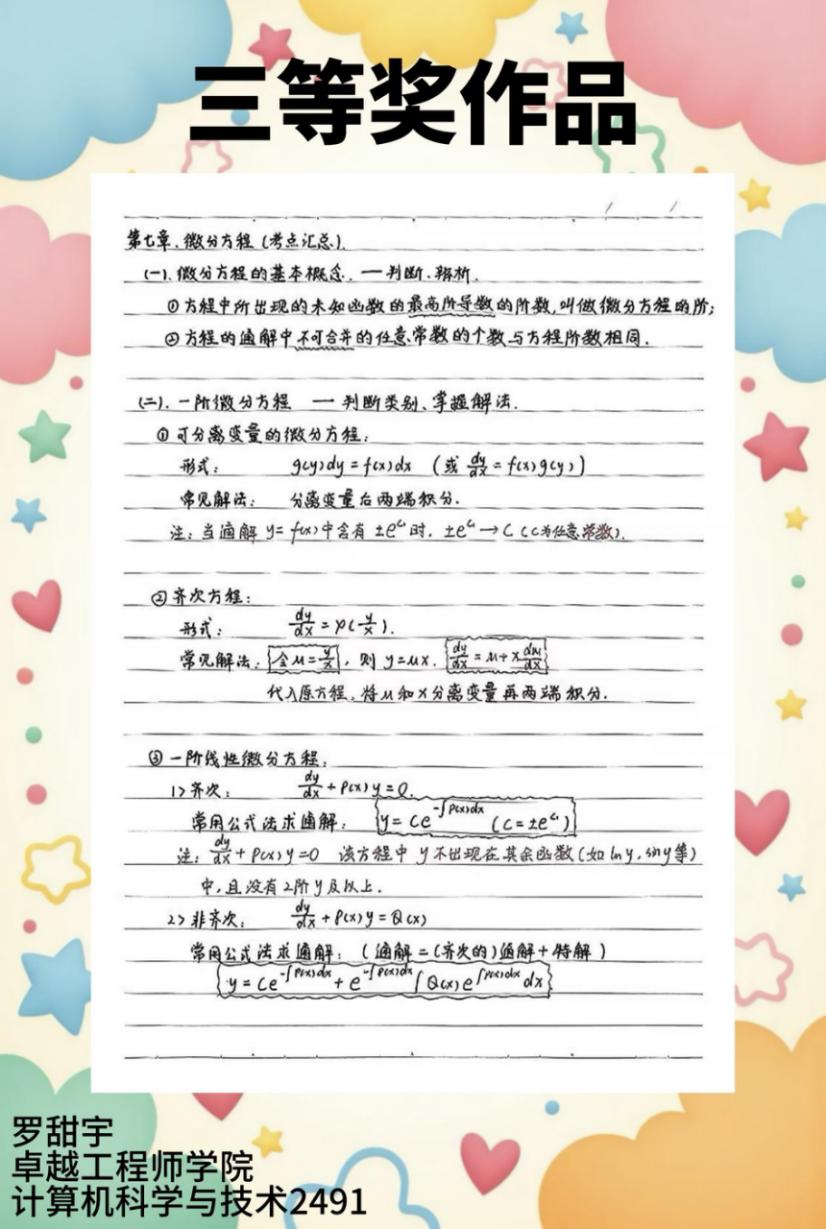 三等奖作品
第七章.微分方程(考点汇总).
(一).微分方程的基本概念. — 判断.辨析.
①方程中所出现的未知函数的最高阶导数的阶数,叫做微分方程的阶;
②方程的通解中不可合并的任意常数的个数与方程阶数相同.
(二).一阶微分方程 — 判断类别、掌握解法.
①可分离变量的微分方程:
形式: g(y)dy=f(x)dx (或 dy/dx=f(x)g(y))
常见解法: 分离变量后两端积分.
注:当通解 y=f(x)中含有 ±e^{C₁}时, ±e^{C₁}→C (C为任意常数).
②齐次方程:
形式: dy/dx=φ(y/x).
常见解法:令u=y/x, 则 y=ux, dy/dx=u+x du/dx
代入原方程,将u和x分离变量再两端积分.
③一阶线性微分方程:
1>齐次: dy/dx+P(x)y=0.
常用公式法求通解: y=Ce^{-∫P(x)dx} (C=±e^{C₁})
注: dy/dx+P(x)y=0 该方程中 y不出现在其余函数(如lny,siny等)
中,且没有2阶y及以上.
2>非齐次: dy/dx+P(x)y=Q(x)
常用公式法求通解: (通解=(齐次的)通解+特解)
y=Ce^{-∫P(x)dx}+e^{-∫P(x)dx}∫Q(x)e^{∫P(x)dx}dx
罗甜宇
卓越工程师学院
计算机科学与技术2491